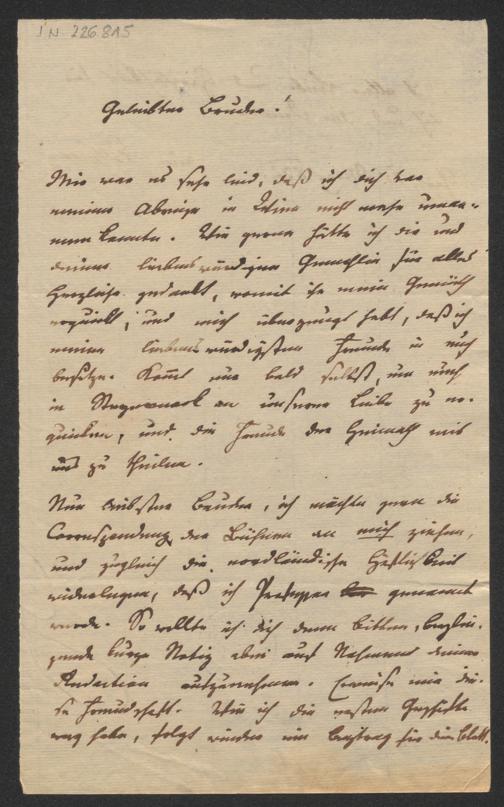 I N 226.815
Geliebter Bruder!
Mir war es sehr leid, daß ich dich vor
meiner Abreise in Wien nicht mehr umar-
men konnte. Wie gerne hätte ich dir und
deiner liebenswürdigen Gemahlin für alles
Herzliche gedankt, womit ihr mein Gemüth
erquickt, und mich überzeugt habt, daß ich
meine liebenswürdigsten Freunde in euch
besitze. Kommt nur bald selbst, um euch
in Steyermark an unserer Liebe zu er-
quicken, und die Freude der Heimath mit
uns zu theilen.
Nun liebster Bruder, ich möchte gern die
Correspondenz der Bühnen an mich ziehen,
und zugleich die nordländische Höflichkeit
widerlegen, daß ich Professor genannt
werde. So wollte ich dich denn bitten, beylie-
gende kurze Notiz eben auf Nahmen deiner
Redaction aufzunehmen. Erweise mir die-
se Freundschaft. Wie ich die ersten Geschäfte
weg habe, folgt wieder ein Beytrag für dein Blatt.